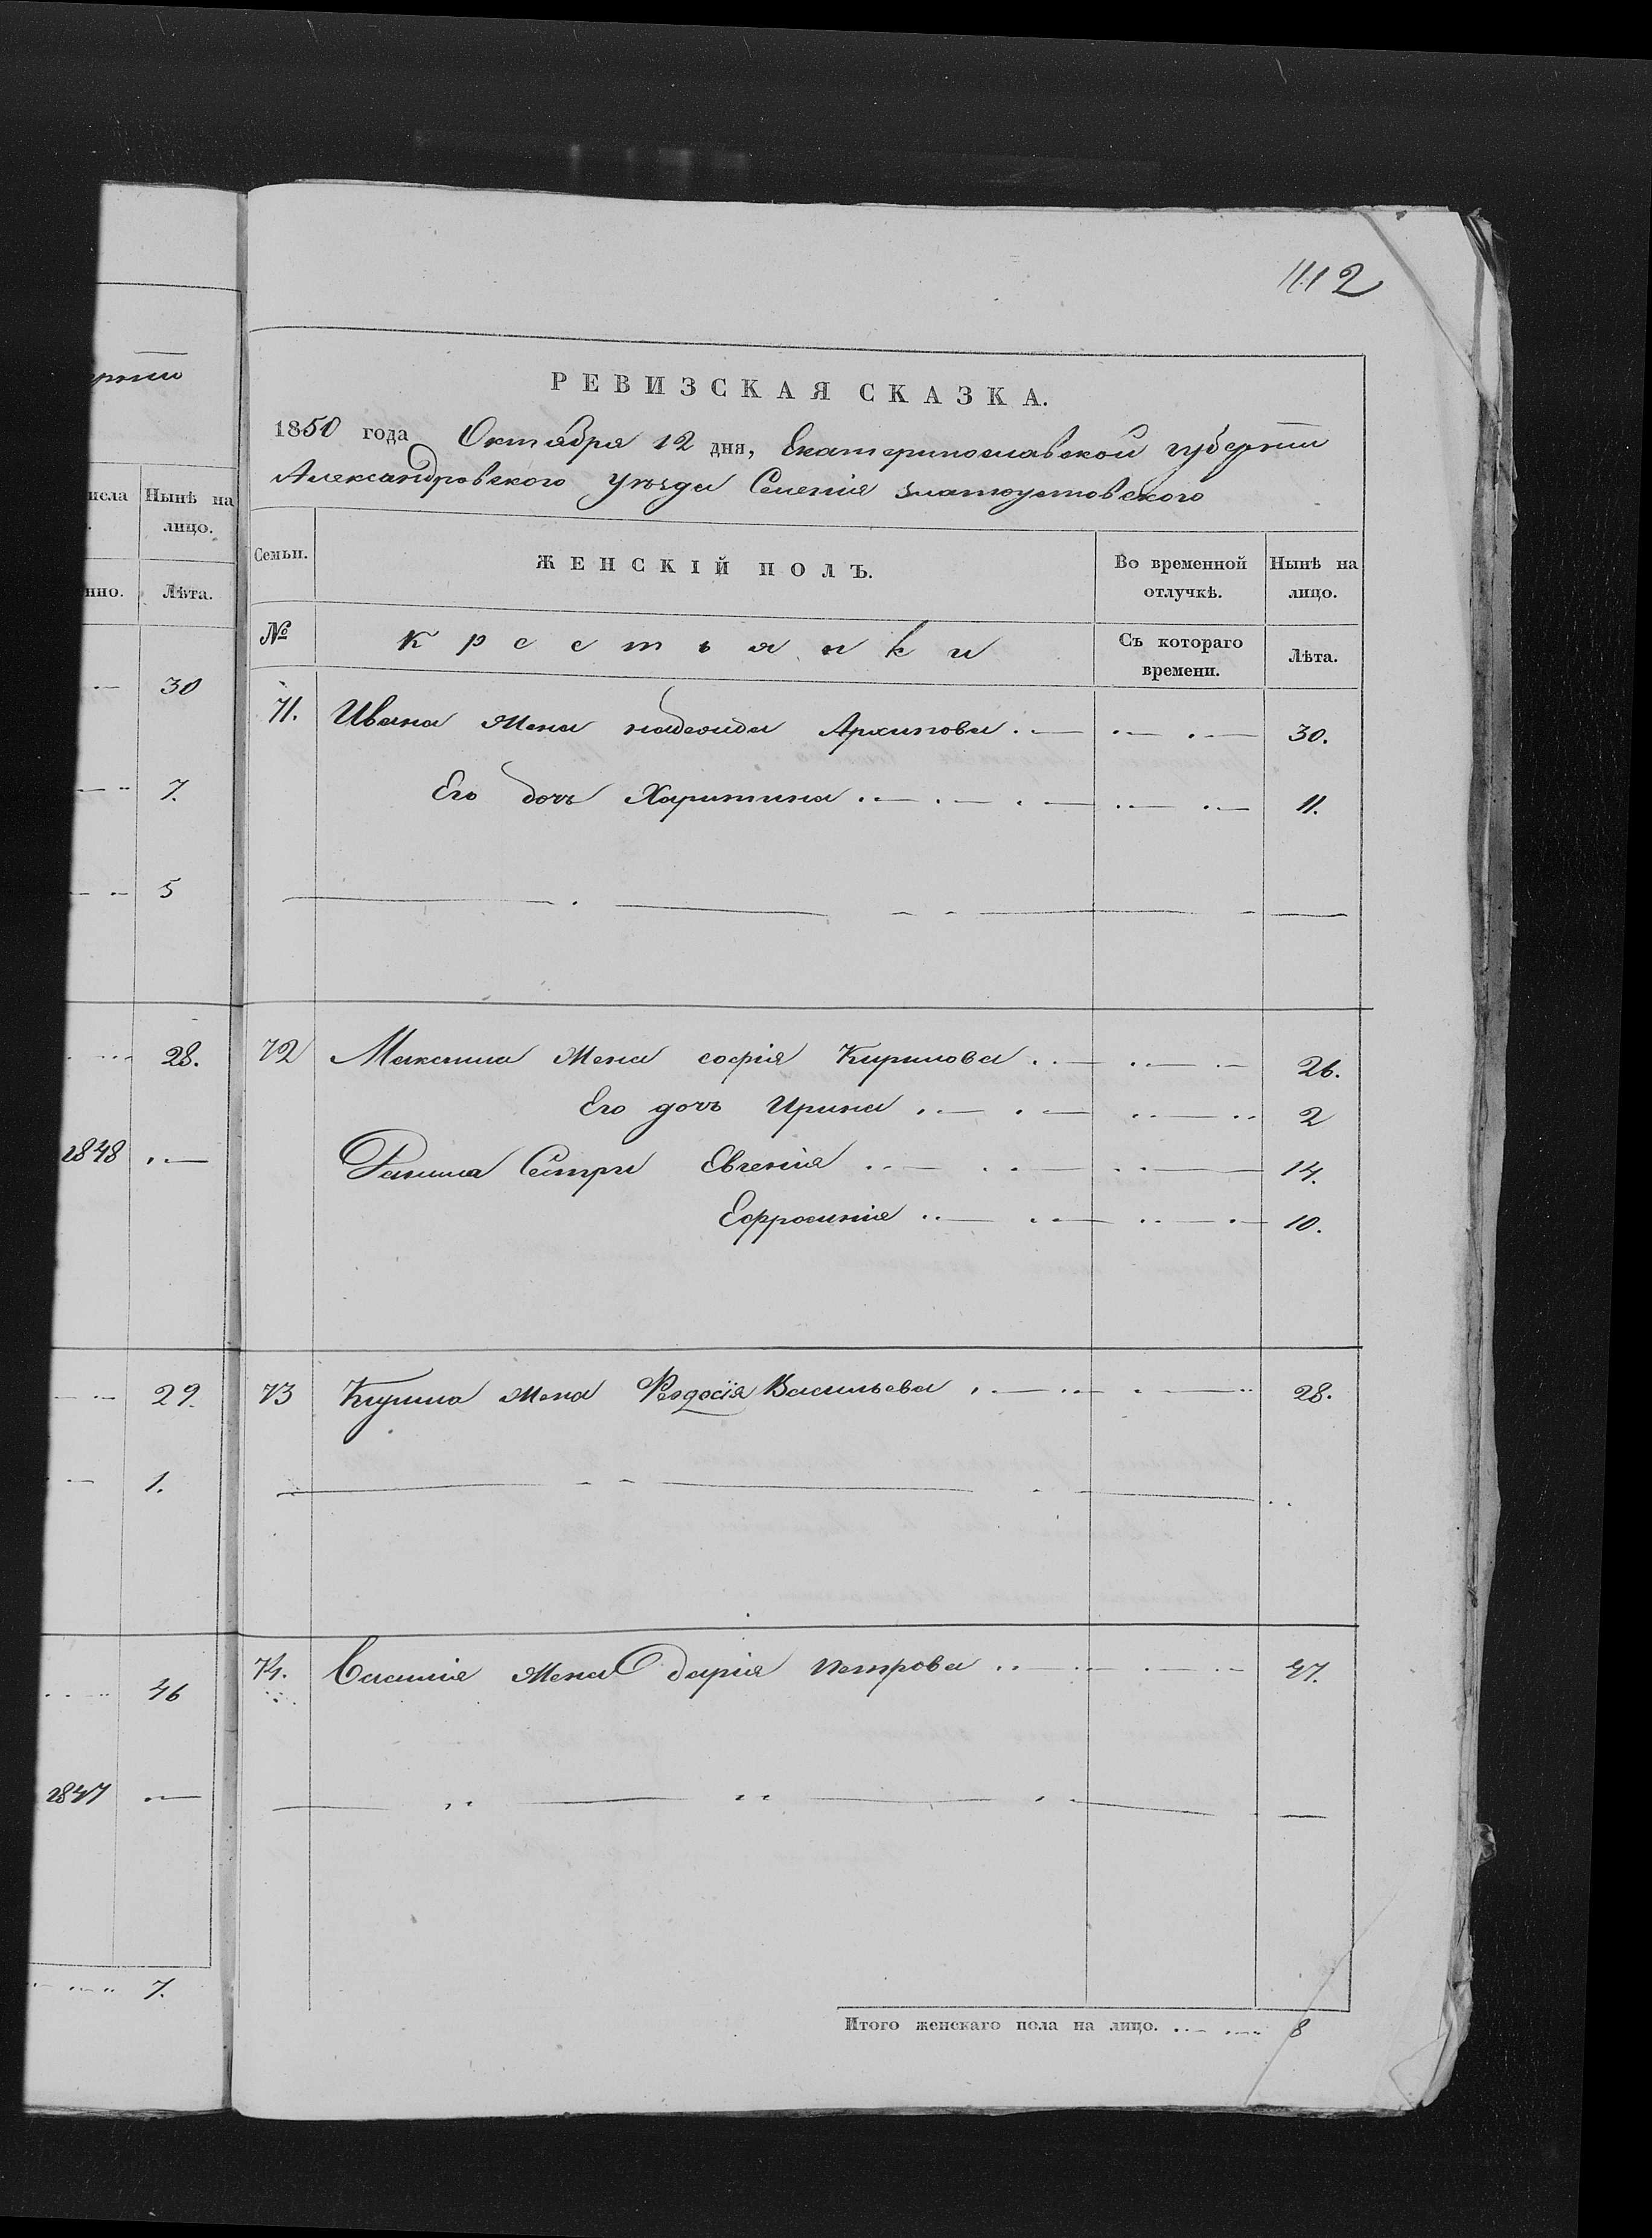 1112
РЕВИЗСКАЯ СКАЗКА.
1850 года Октября 12 дня, Екатеринославской губернiи
Александровского Уѣзда Селенiя Златоустовского
Семьи.
ЖЕНСКІЙ ПОЛЪ.
Во временной отлучкѣ.
Нынѣ на лицо.
№
Крестьянки
Съ котораго времени.
Лѣта.
71. Ивана Жена надежда Архипова 30.
Его дочь Харитина 11.
72 Максима Жена софiя Кирилова 26.
Его дочь Ирина 2
Сестры Евгенiя 14.
Ефросинiя 10.
73 Жена Феодосiя Васильева 28.
74. Василiя Жена дарiя петрова 47.
Итого женскаго пола на лицо. 8
исла
Нынѣ на
лицо.
нно.
Лѣта.
30
7.
5
28.
1848
29.
1.
46
1847
7.